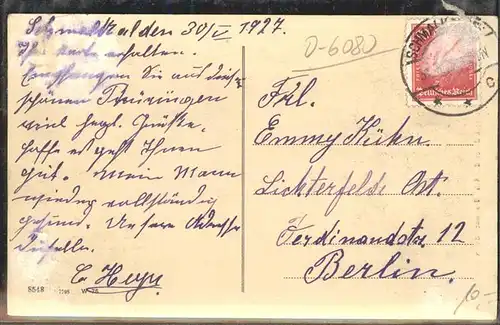 Schmalkalden 30/V 1927.
Ihre Karte erhalten.
Empfangen Sie aus dem
schönen Thüringen
viel hzgl. Grüße.
hoffe es geht Ihnen
gut. Mein Mann
wieder vollständig
gesund. Unsere Adresse
dieselbe.
E. Heyn
8518 W
D-6080
SCHMALKALDEN
c
Deutsches Reich
Frl.
Emmy Kühn.
Lichterfelde Ost.
Ferdinandstr. 12
Berlin.
10.-